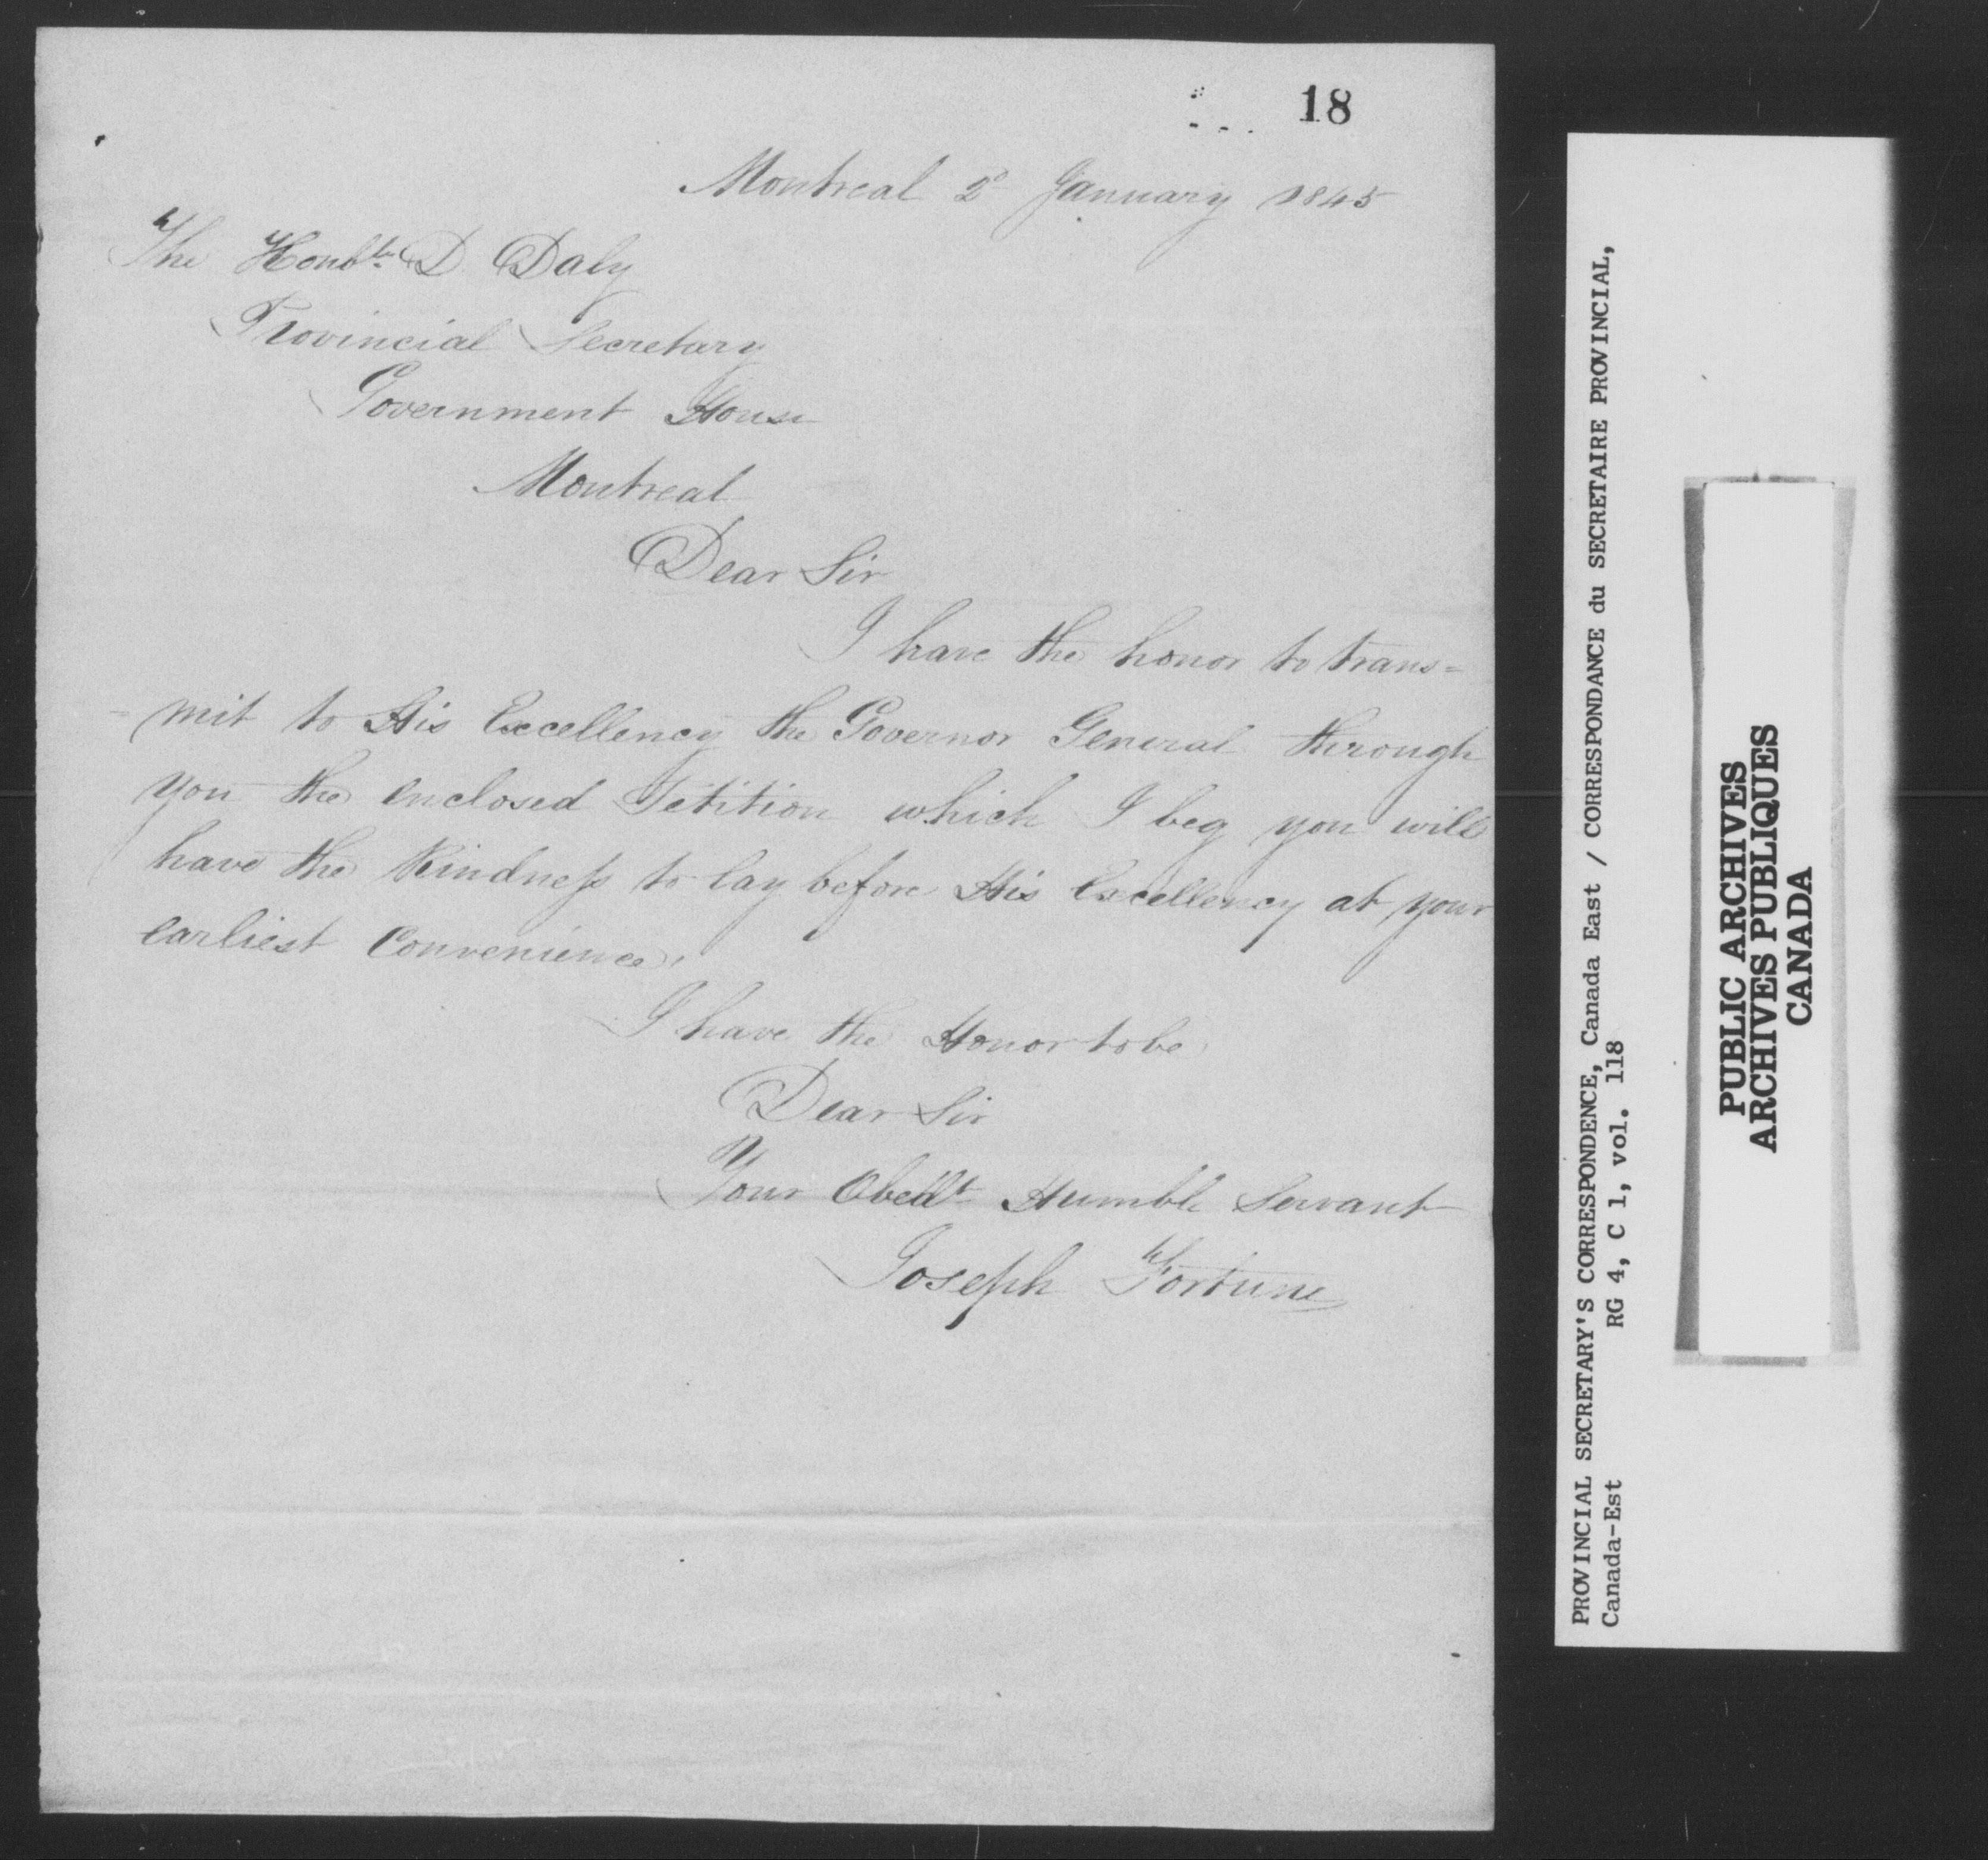 18
Montreal 2d January 1845
The Honble. D Daly
Provincial Secretary
Government House
Montreal
Dear Sir
I have the honor to trans=
=mit to His Excellency the Governor General through
you the enclosed Petition which I beg you will
have the Kindness to lay before His Excellency at your
earliest Convenience.
I have the Honor to be
Dear Sir
Your Obedt Humble Servant
Joseph Fortune
PROVINCIAL SECRETARY'S CORRESPONDENCE, Canada East / CORRESPONDANCE du SECRETAIRE PROVINCIAL,
Canada-Est RG 4, C 1, vol. 118
PUBLIC ARCHIVES
ARCHIVES PUBLIQUES
CANADA